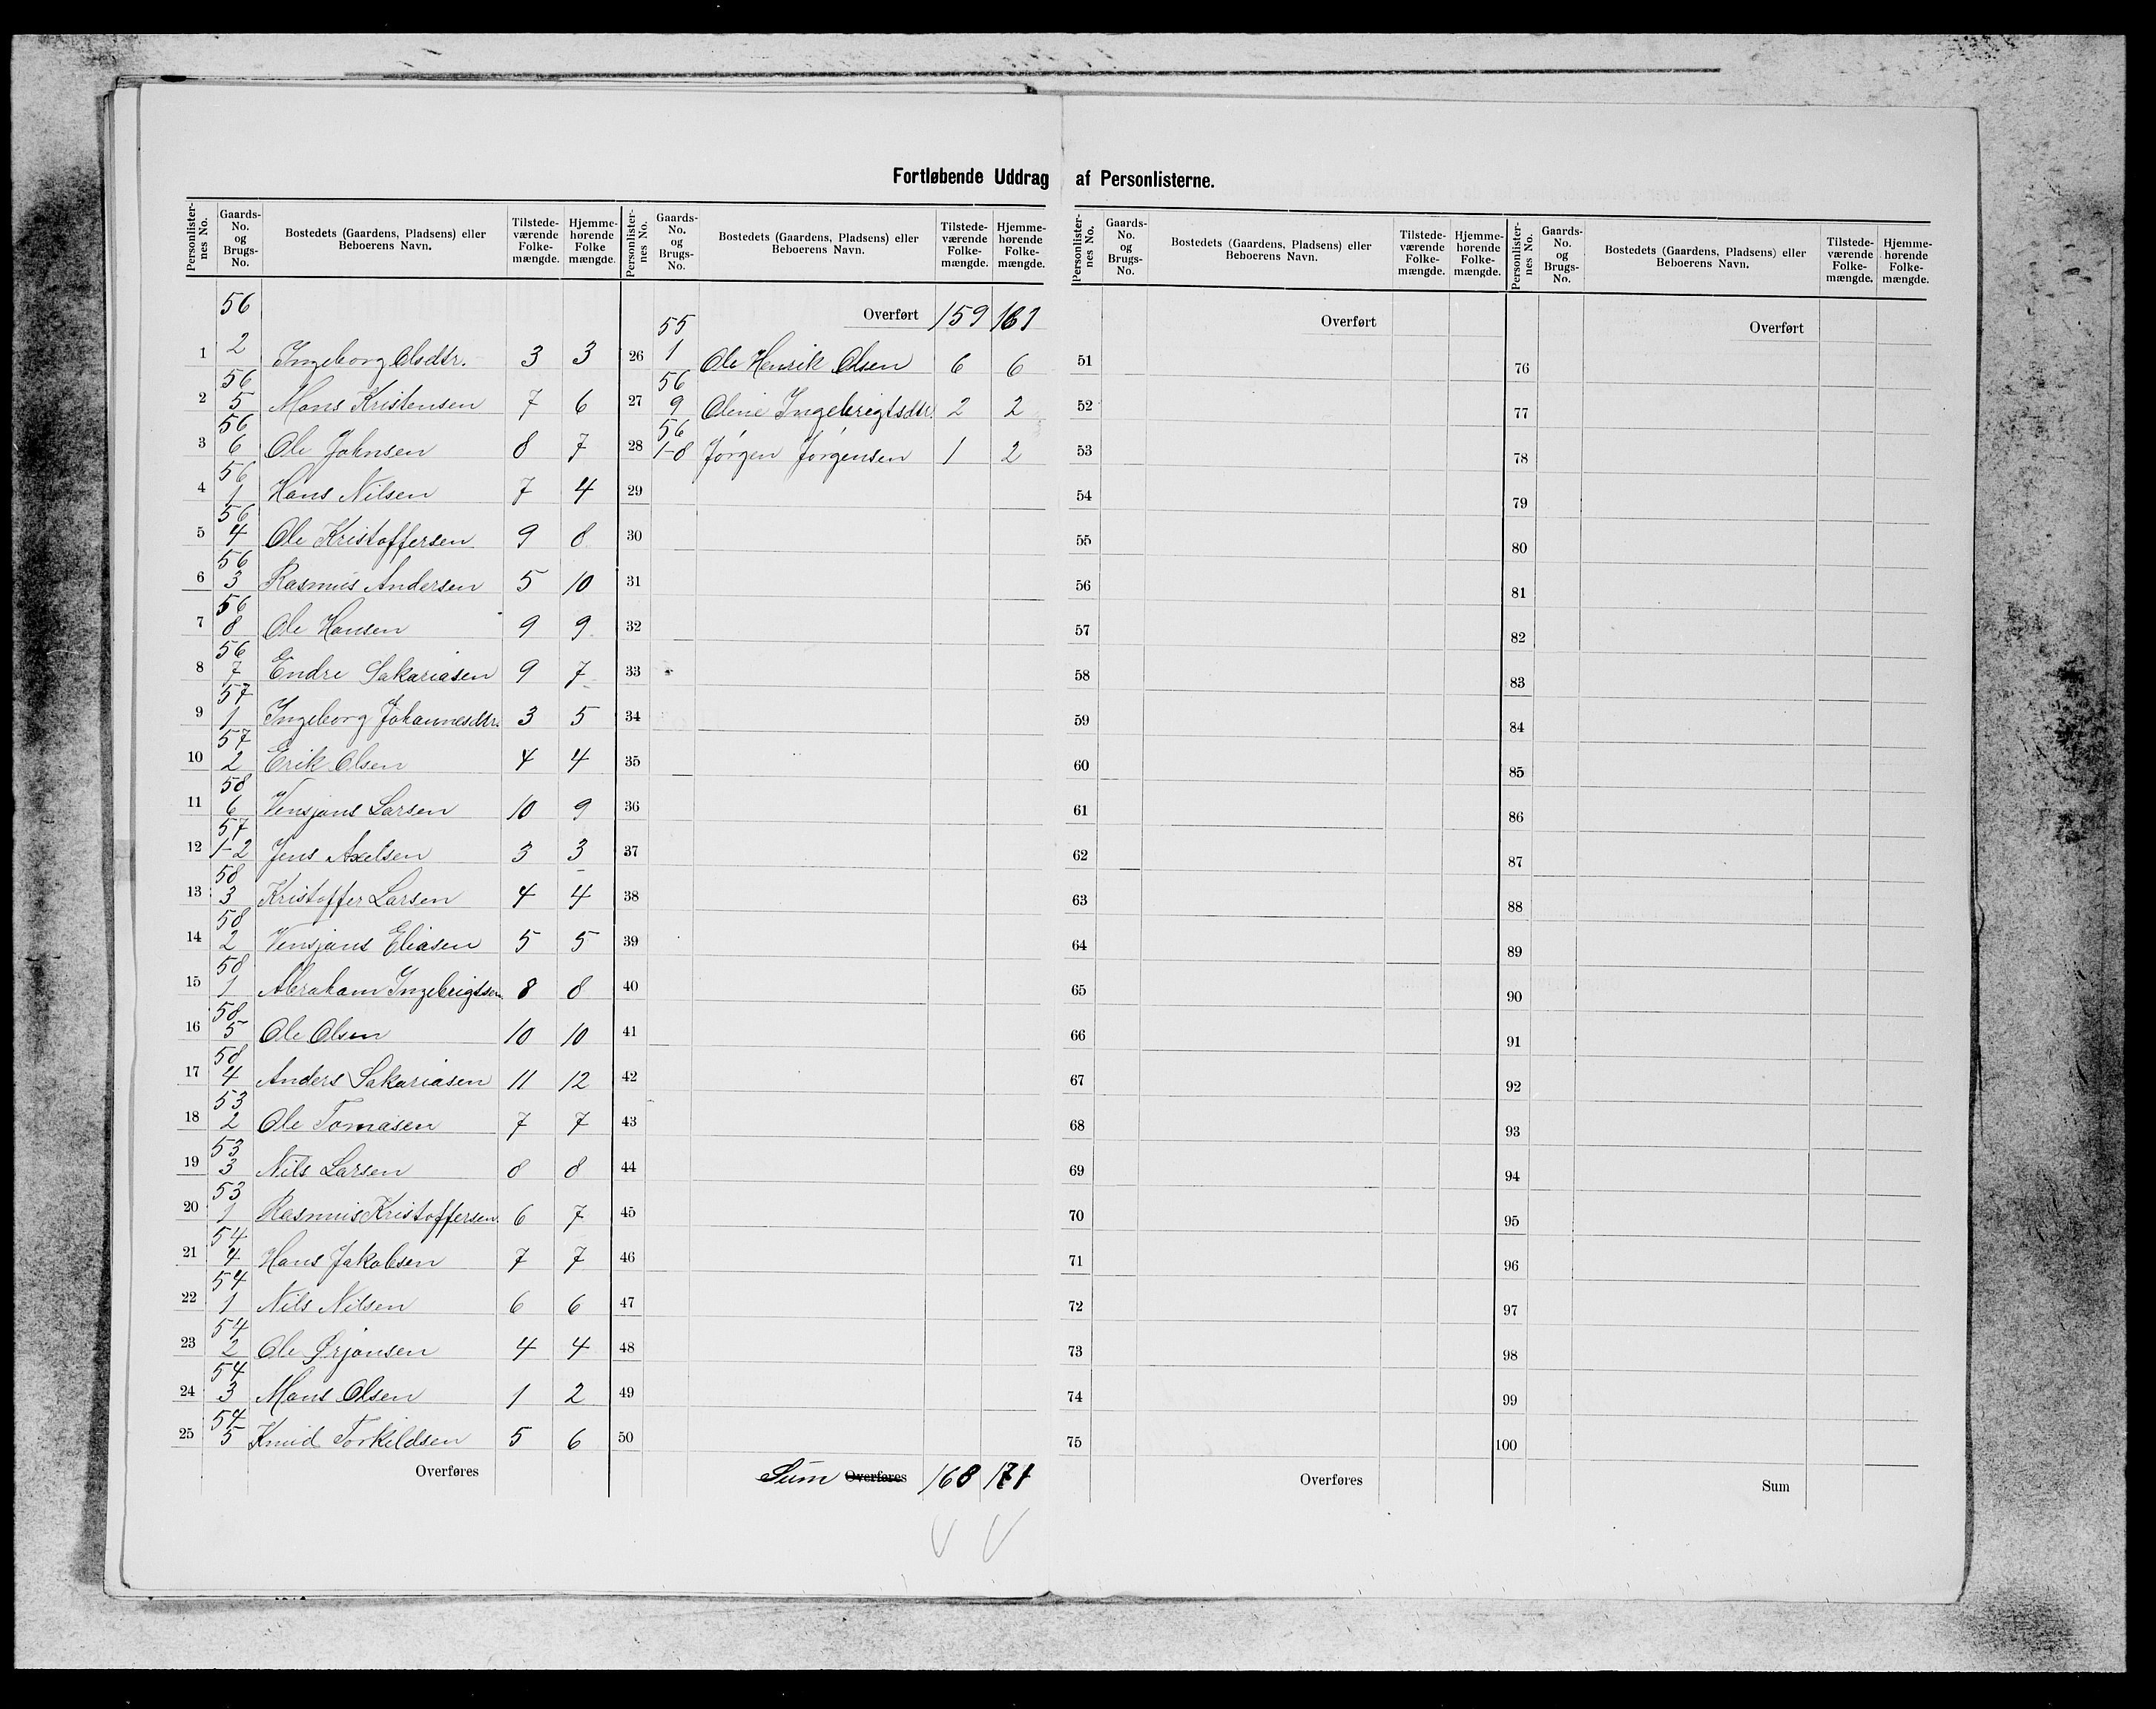 Fortløbende Uddrag af Personlisterne.
Personlister-nes No. Gaards-No. og Brugs-No. Bostedets (Gaardens, Pladsens) eller Beboerens Navn. Tilstede-værende Folke-mængde. Hjemme-hørende Folke mængde.
1 56 2 Ingeborg Olsdtr. 3 3
2 56 5 Mons Kristensen 7 6
3 56 6 Ole Johnsen 8 7
4 56 1 Hans Nilsen 7 4
5 56 4 Ole Kristoffersen 9 8
6 56 3 Rasmus Andersen 5 10
7 56 8 Ole Hansen 9 9
8 56 7 Endre Sakariasen 9 7
9 57 1 Ingeborg Johannesdtr. 3 5
10 57 2 Erik Olsen 4 4
11 58 6 Vensjans Larsen 10 9
12 57 1-2 Jens Axelsen 3 3
13 58 3 Kristoffer Larsen 4 4
14 58 2 Vensjans Eliasen 5 5
15 58 1 Abraham Ingebrigtsen 8 8
16 58 5 Ole Olsen 10 10
17 58 4 Anders Sakariasen 11 12
18 53 2 Ole Tomasen 7 7
19 53 3 Nils Larsen 8 8
20 53 1 Rasmus Kristoffersen 6 7
21 54 4 Hans Jakobsen 7 7
22 54 1 Nils Nilsen 6 6
23 54 2 Ole Ørjansen 4 4
24 54 3 Mons Olsen 1 2
25 54 5 Knud Torkildsen 5 6
Overføres
Personlister-nes No. Gaards-No. og Brugs-No. Bostedets (Gaardens, Pladsens) eller Beboerens Navn. Tilstede-værende Folke-mængde. Hjemme-hørende Folke-mængde.
Overført 159 161
26 55 1 Ole Henrik Olsen 6 6
27 56 9 Oline Ingebrigtsdtr. 2 2
28 56 1-8 Jørgen Jørgensen 1 2
29
30
31
32
33
34
35
36
37
38
39
40
41
42
43
44
45
46
47
48
49
50
Sum Overføres 168 171
Personlister-nes No. Gaards-No. og Brugs-No. Bostedets (Gaardens, Pladsens) eller Beboerens Navn. Tilstede-værende Folke-mængde. Hjemme-hørende Folke-mængde.
Overført
51
52
53
54
55
56
57
58
59
60
61
62
63
64
65
66
67
68
69
70
71
72
73
74
75
Overføres
Personlister-nes No. Gaards-No. og Brugs-No. Bostedets (Gaardens, Pladsens) eller Beboerens Navn. Tilstede-værende Folke-mængde. Hjemme-hørende Folke-mængde.
Overført
76
77
78
79
80
81
82
83
84
85
86
87
88
89
90
91
92
93
94
95
96
97
98
99
100
Sum